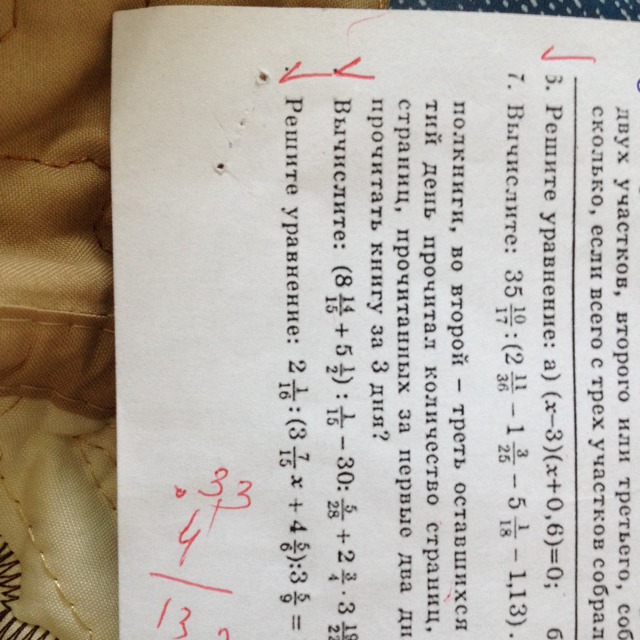 двух участков, второго или третьего, соб
сколько, если всего с трех участков собра
3. Решите уравнение: а) (x–3)(x+0,6)=0;
7. Вычислите: 35 10/17 : (2 11/36 – 1 3/25 – 5 1/18 – 1,13)
полкниги, во второй – треть оставшихся
тий день прочитал количество страниц,
страниц, прочитанных за первые два дн
прочитать книгу за 3 дня?
Вычислите: (8 4/15 + 5 1/2) : 1/15 – 30 · 5/28 + 2 3/4 · 3
Решите уравнение: 2 1/10 : (3 7/15 x + 4 5/6) : 3 5/9 =
33
4
13